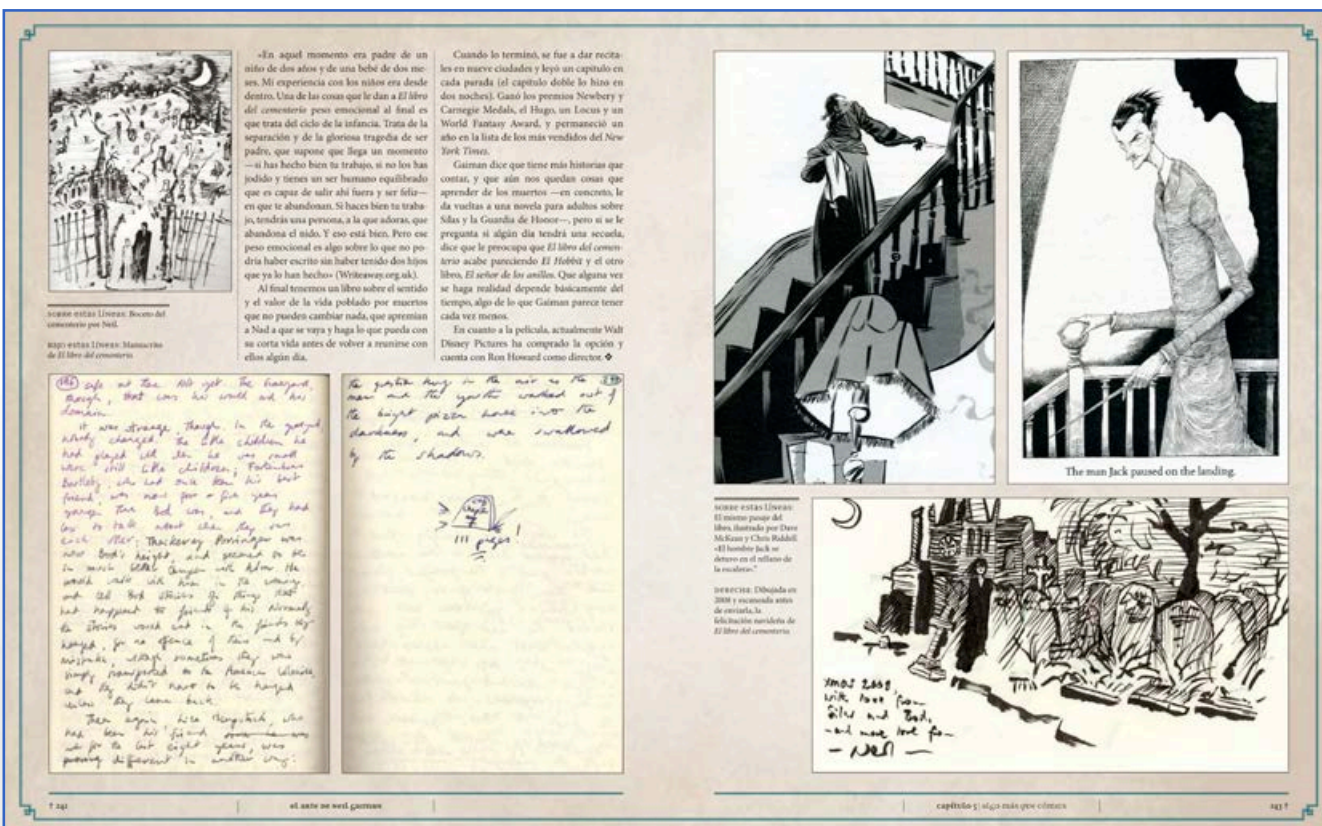 «En aquel momento era padre de un
niño de dos años y de una bebé de dos me-
ses. Mi experiencia con los niños era desde
dentro. Una de las cosas que le dan a El libro
del cementerio peso emocional al final es
que trata del ciclo de la infancia. Trata de la
separación y de la gloriosa tragedia de ser
padre, que supone que llega un momento
—si has hecho bien tu trabajo, si no los has
jodido y tienes un ser humano equilibrado
que es capaz de salir ahí fuera y ser feliz—
en que te abandonan. Si haces bien tu traba-
jo, tendrás una persona, a la que adoras, que
abandona el nido. Y eso está bien. Pero ese
peso emocional es algo sobre lo que no po-
dría haber escrito sin haber tenido dos hijos
que ya lo han hecho» (Writeaway.org.uk).
Al final tenemos un libro sobre el sentido
y el valor de la vida poblado por muertos
que no pueden cambiar nada, que apremian
a Nad a que se vaya y haga lo que pueda con
su corta vida antes de volver a reunirse con
ellos algún día.
Cuando lo terminó, se fue a dar recita-
les en nueve ciudades y leyó un capítulo en
cada parada (el capítulo doble lo hizo en
dos noches). Ganó los premios Newbery y
Carnegie Medals, el Hugo, un Locus y un
World Fantasy Award, y permaneció un
año en la lista de los más vendidos del New
York Times.
Gaiman dice que tiene más historias que
contar, y que aún nos quedan cosas que
aprender de los muertos —en concreto, le
da vueltas a una novela para adultos sobre
Silas y la Guardia de Honor—, pero si se le
pregunta si algún día tendrá una secuela,
dice que le preocupa que El libro del cemen-
terio acabe pareciendo El Hobbit y el otro
libro, El señor de los anillos. Que alguna vez
se haga realidad depende básicamente del
tiempo, algo de lo que Gaiman parece tener
cada vez menos.
En cuanto a la película, actualmente Walt
Disney Pictures ha comprado la opción y
cuenta con Ron Howard como director. ❖
SOBRE ESTAS LÍNEAS: Boceto del
cementerio por Neil.
BAJO ESTAS LÍNEAS: Manuscrito
de El libro del cementerio.
safe at the not yet. The graveyard,
though, that was his world and his
domain.
It was strange, though. In the
changed. The little children he
had played with when he was small
were still little children; Fortinbras
Bartleby, who had once been his best
friend, was now four or five years
younger than Bod was, and they had
less to talk about when they saw
each other; Thackeray Porringer was
now Bod's height, and seemed to be
in much better temper with him. He
would walk with him in the evening
and tell Bod stories of things that
had happened to friends of his. Normally
the stories would end in the friends being
hanged, for no offence of theirs and by
mistake, although sometimes they were
simply transported to the American Colonies
and they didn't have to be hanged
unless they came back.
Then again, Liza Hempstock, who
had been his friend
for the last eight years, was
proving different in another way:
the question hung in the air as the
man and the youth walked out of
the bright pizza house into the
darkness, and were swallowed
by the shadows.
111 pages!
The man Jack paused on the landing.
SOBRE ESTAS LÍNEAS:
El mismo pasaje del
libro, ilustrado por Dave
McKean y Chris Riddell.
«El hombre Jack se
detuvo en el rellano de
la escalera».
DERECHA: Dibujada en
2008 y escaneada antes
de enviarla, la
felicitación navideña de
El libro del cementerio.
Xmas 2008,
with love from
Silas and Bod,
- and more love from
- Neil -
† 242
el arte de neil gaiman
capítulo 5 | algo más que cómics
243 †